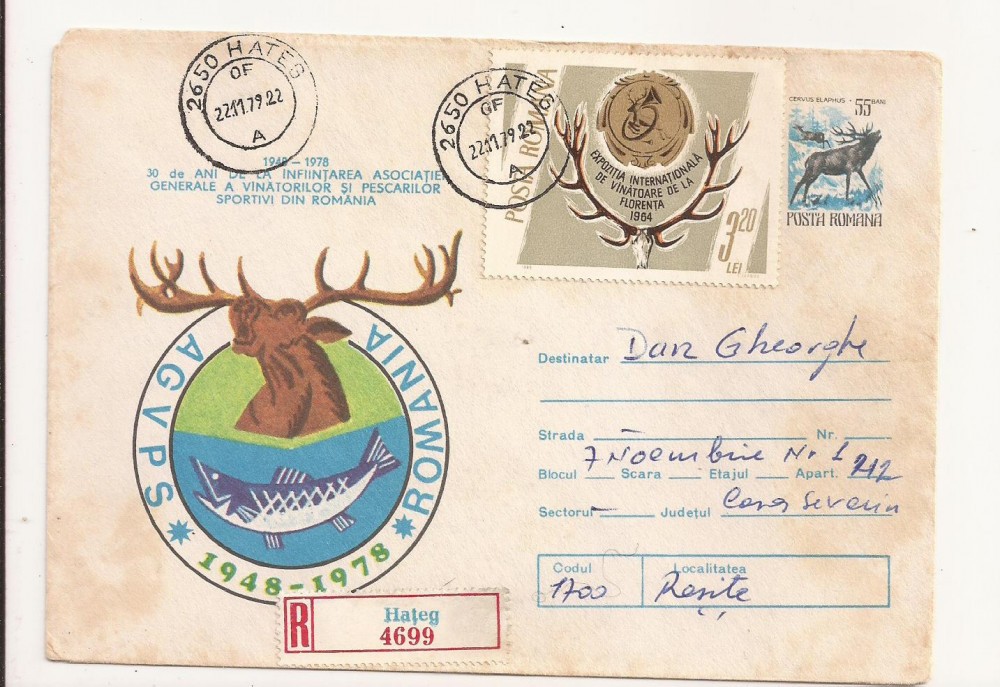 2650 HATEG
OF
22.11.79.22
A
2650 HATEG
OF
22.11.79.22
A
POSTA ROMANA
EXPOZIȚIA INTERNAȚIONALĂ
DE VÎNĂTOARE DE LA
FLORENȚA
1964
3 20
LEI
CERVUS ELAPHUS • 55 BANI
POSTA ROMANA
1948 – 1978
30 de ANI DE LA INFIINȚAREA ASOCIAȚIEI
GENERALE A VINATORILOR ȘI PESCARILOR
SPORTIVI DIN ROMÂNIA
AGVPS ROMANIA
1948-1978
Destinatar Dan Gheorghe
Strada Nr.
7 Noembrie Nr 1
Blocul Scara Etajul Apart. 212
Sectorul – Județul Caraș Severin
Codul Localitatea
1700 Reșița
R Hațeg
4699